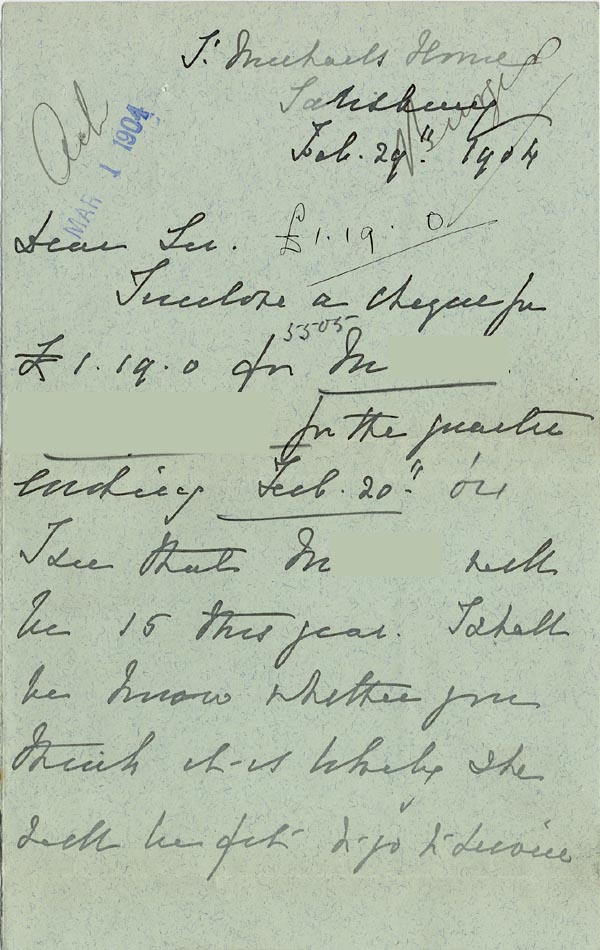 St Michaels Home
Salisbury
Feb. 29th 1904
Ack
MAR 1 1904
Dear Sir. £1.19.0
I enclose a cheque for
5505
£1.19.0 for M
for the quarter
ending Feb. 20th
I see that M will
be 15 this year. I shall
be know whether you
think it is likely she
will be fit to go to service